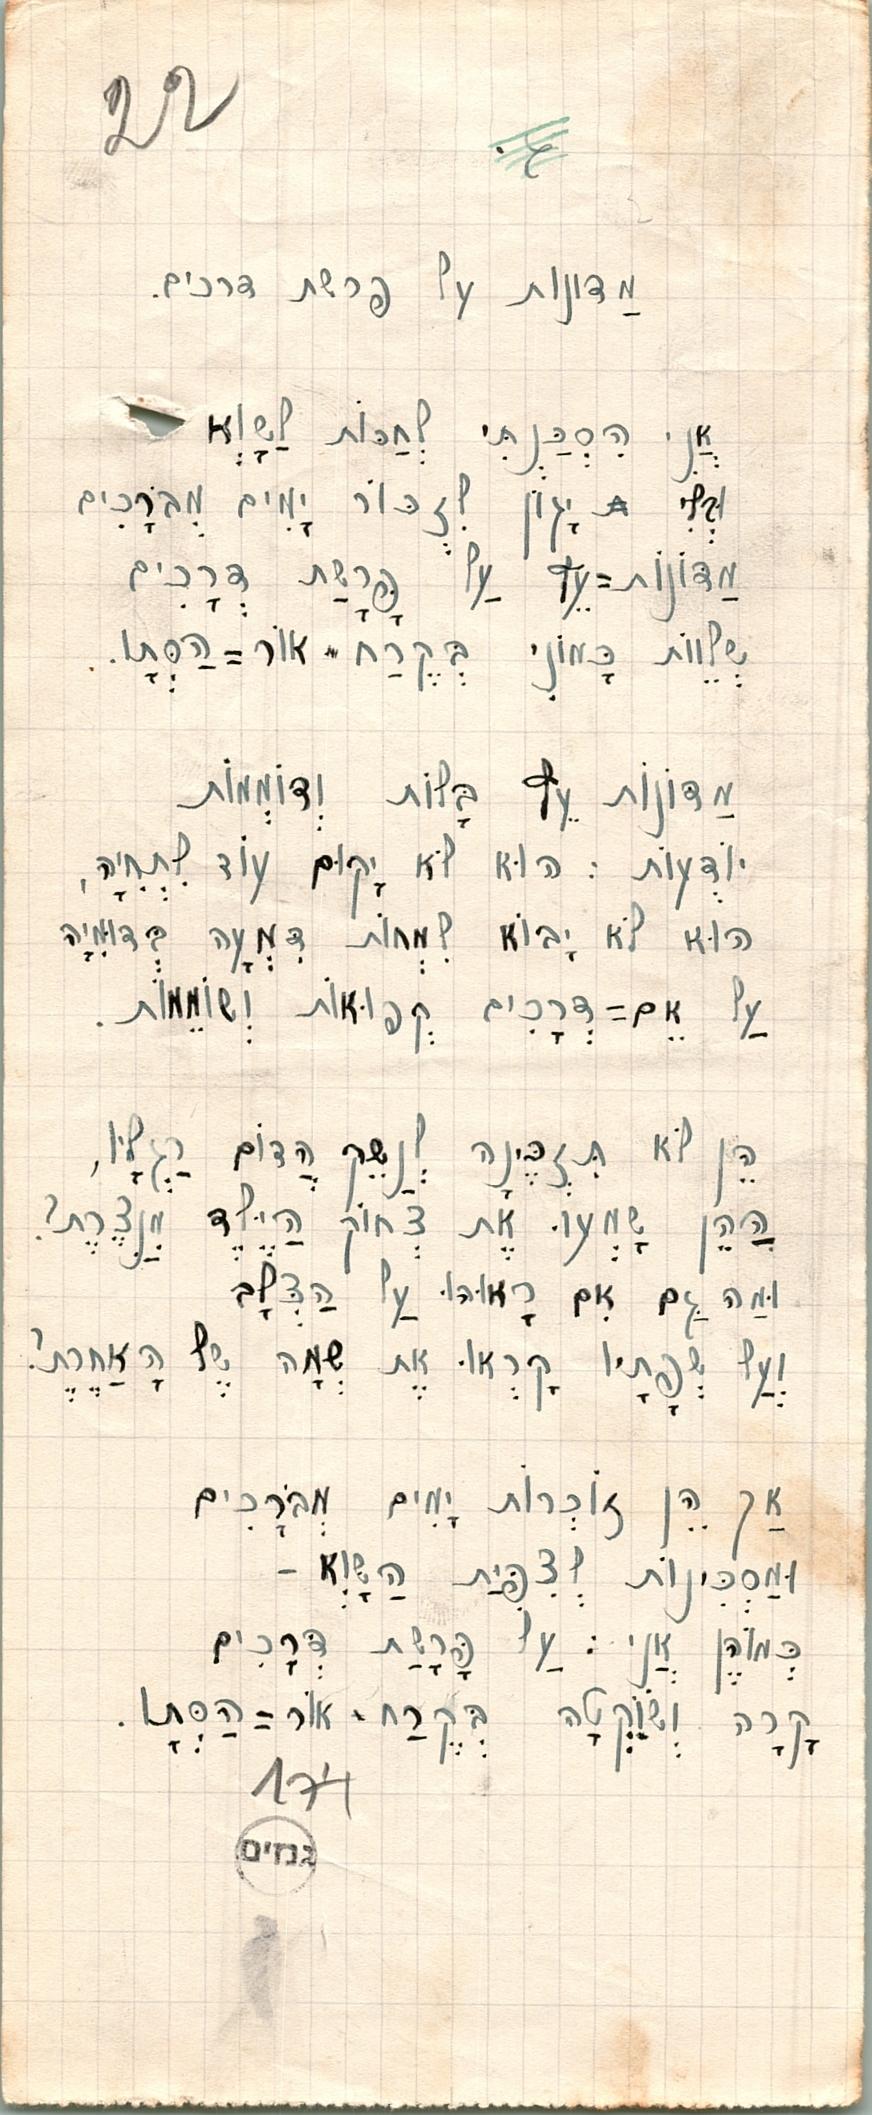 22
מַדונות על פרשת דרכים.
אֲנִי הִסְכַּנְתִּי לְחַכּוֹת לַשָּׁוְא
וּבְלִי יָגוֹן לִזְכּוֹר יָמִים מְבֹרָכִים
מַדּוֹנוֹת=עֵץ עַל פָּרָשַׁת דְּרָכִים
שְׁלֵווֹת כָּמוֹנִי בְּקֶרַח-אוֹר=הַסְּתָו.
מַדּוֹנוֹת עֵץ בָּלוֹת וְדוֹמְמוֹת
יוֹדְעוֹת : הוּא לֹא יָקוּם עוֹד לִתְחִיָּה,
הוּא לֹא יָבוֹא לִמְחוֹת דִּמְעָה בְּדוּמִיָּה
עַל אֵם=דְּרָכִים קְפוּאוֹת וְשׁוֹמֵמוֹת.
הֵן לֹא תִּזְכֶּינָה לְנַשֵּׁק הֲדוֹם רַגְלָיו,
הַהֵן שָׁמְעוּ אֶת צְחוֹק הַיֶּלֶד מִנַּצֶּרֶת?
וּמַה גַּם אִם רָאוּהוּ עַל הַצְּלָב
וְעַל שְׂפָתָיו קָרְאוּ אֶת שְׁמָהּ שֶׁל הָאַחֶרֶת?
אַךְ הֵן זוֹכְרוֹת יָמִים מְבֹרָכִים
וּמַסְכִּינוֹת לְצִפִּיַּת הַשָּׁוְא -
כְּמוֹהֶן אֲנִי : עַל פָּרָשַׁת דְּרָכִים
קָרָה וְשׁוֹקְטָה בְּקֶרַח-אוֹר=הַסְּתָו.
גנזים